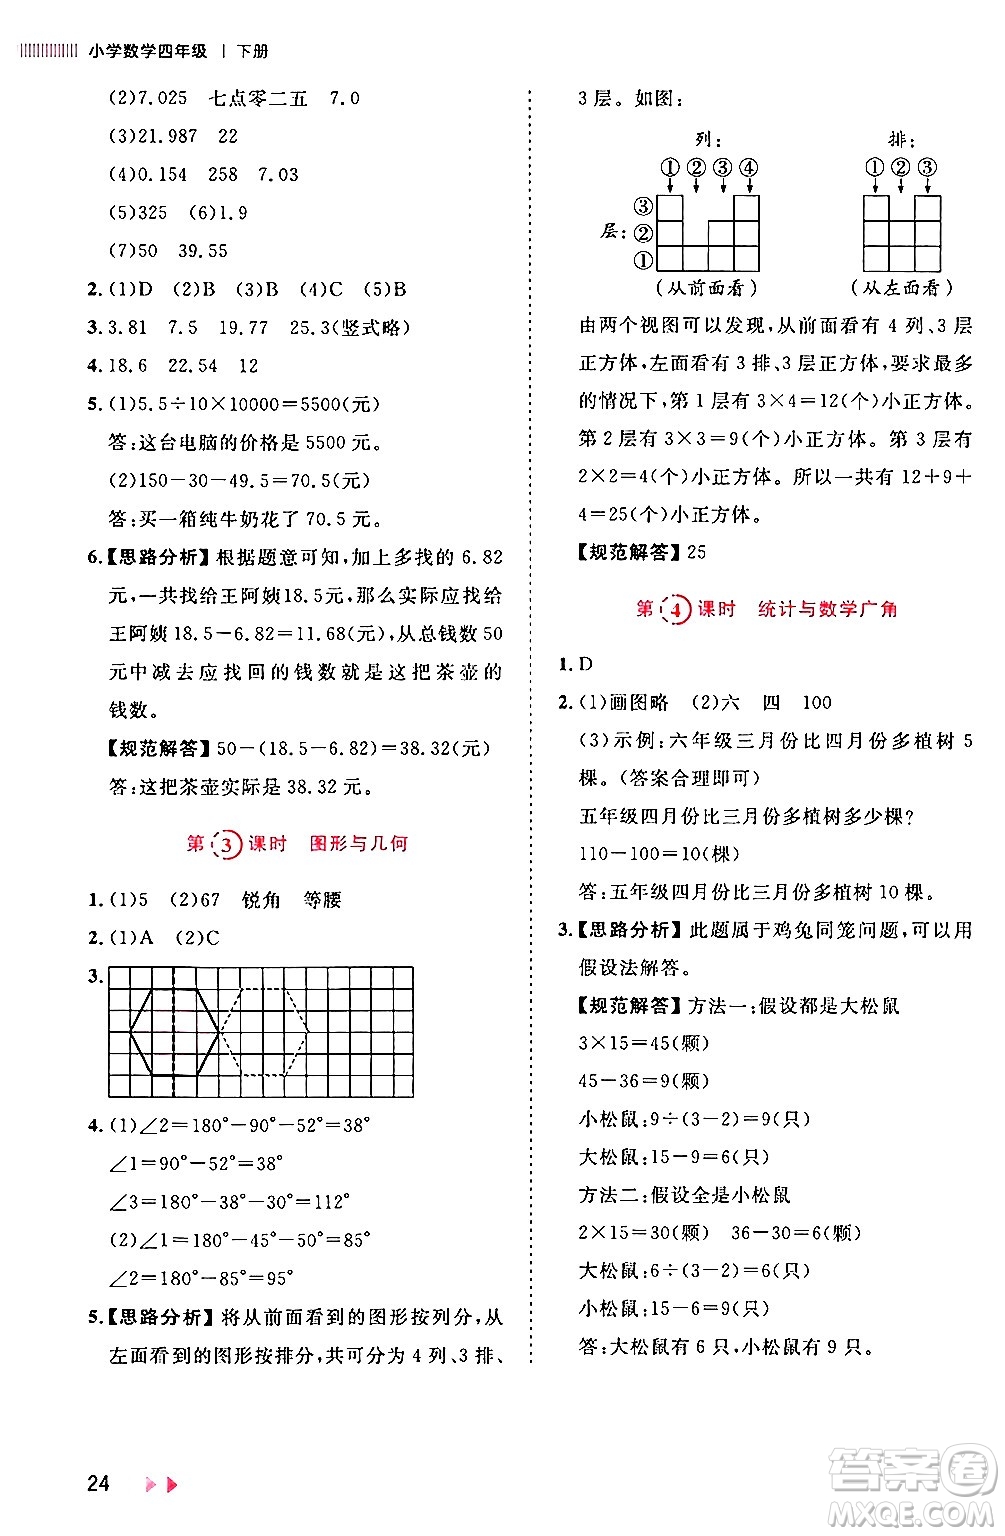 小学数学四年级 | 下册
(2)7.025 七点零二五 7.0
(3)21.987 22
(4)0.154 258 7.03
(5)325 (6)1.9
(7)50 39.55
2. (1)D (2)B (3)B (4)C (5)B
3. 3.81 7.5 19.77 25.3(竖式略)
4. 18.6 22.54 12
5. (1)5.5÷10×10000=5500(元)
答:这台电脑的价格是 5500 元。
(2)150-30-49.5=70.5(元)
答:买一箱纯牛奶花了 70.5 元。
6.【思路分析】根据题意可知,加上多找的 6.82
元,一共找给王阿姨18.5元,那么实际应找给
王阿姨18.5-6.82=11.68(元),从总钱数50
元中减去应找回的钱数就是这把茶壶的
钱数。
【规范解答】50-(18.5-6.82)=38.32(元)
答:这把茶壶实际是 38.32 元。
第 3 课时 图形与几何
1. (1)5 (2)67 锐角 等腰
2. (1)A (2)C
3.
4. (1)∠2=180°-90°-52°=38°
∠1=90°-52°=38°
∠3=180°-38°-30°=112°
(2)∠1=180°-45°-50°=85°
∠2=180°-85°-10°=85°
5.【思路分析】将从前面看到的图形按列分,从
左面看到的图形按排分,共可分为 4 列、3 排、
3 层。如图:
列: 排:
① ② ③ ④ ① ② ③
③
层: ②
①
(从前面看) (从左面看)
由两个视图可以发现,从前面看有 4 列、3 层
正方体,左面看有 3 排、3 层正方体,要求最多
的情况下,第 1 层有 3×4=12(个)小正方体。
第 2 层有 3×3=9(个)小正方体。第 3 层有
2×2=4(个)小正方体。所以一共有 12+9+
4=25(个)小正方体。
【规范解答】25
第 4 课时 统计与数学广角
1. D
2. (1)画图略 (2)六 四 100
(3)示例:六年级三月份比四月份多植树 5
棵。(答案合理即可)
五年级四月份比三月份多植树多少棵?
110-100=10(棵)
答:五年级四月份比三月份多植树 10 棵。
3.【思路分析】此题属于鸡兔同笼问题,可以用
假设法解答。
【规范解答】方法一:假设都是大松鼠
3×15=45(颗)
45-36=9(颗)
小松鼠:9÷(3-2)=9(只)
大松鼠:15-9=6(只)
方法二:假设全是小松鼠
2×15=30(颗) 36-30=6(颗)
大松鼠:6÷(3-2)=6(只)
小松鼠:15-6=9(只)
答:大松鼠有 6 只,小松鼠有 9 只。
24
答案圈
MXQE.COM